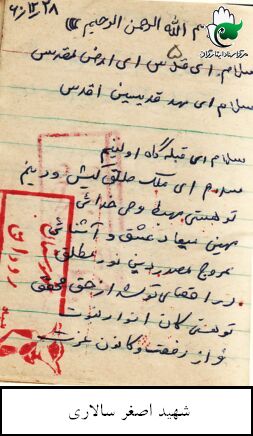 مرکز اسناد ایثارگران
۶۰/۱۲/۲۸
بسم الله الرحمن الرحیم
سلام ای قدس ای ارض مقدس
سلام ای مهد قدیسین اقدس
سلام ای قبله گاه اولینم
سلام ای ملک خلق کیش و دینم
تو هستی مهبط وحی خدائی
مهین میعاد عشق و آشنائی
عروج مصدرین نور مطلق
در اقصای تو شد از حق محقق
تو هستی کان انوار
فراز رفعت و کانون عزت
شهید اصغر سالاری